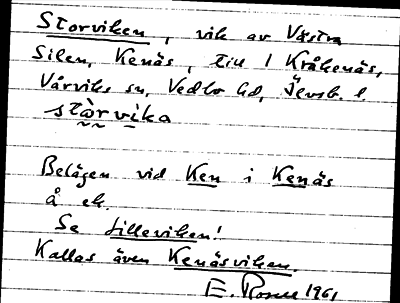 Storviken, vik av Västra
Silen, Kenäs, till 1 Kråkenäs,
Vårviks sn, Vedbo hd, Älvsb. l.
stòrvika
Belägen vid Ken i Kenäs
å ek.
Se Lilleviken!
Kallas även Kenäsviken.
E. 1961